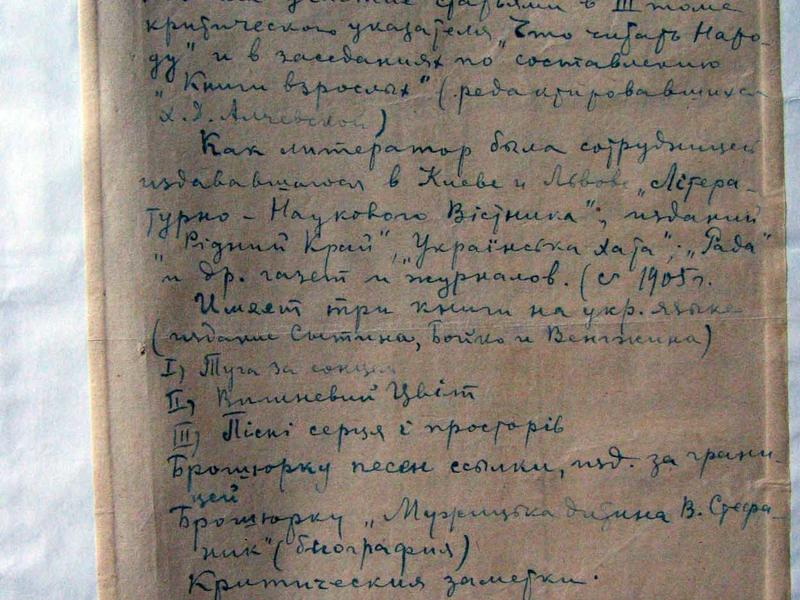 статьями в III томе
критического указателя „Что читать Наро-
ду" и в заседаниях по составлению
„Книги взрослых" (редактировавшихся
Х. Д. Алчевской)
Как литератор была сотрудницей
издававшегося в Киеве и Львове „Літера-
турно-Наукового Вістника"; изданий
„Рідний Край", „Українська Хата"; „Рада"
и др. газет и журналов. (с 1905 г.
Имеет три книги на укр. языке
(издание Сытина, Бойко и Венгжина)
I) Туга за сонцем
II) Вишневий Цвіт
III) Пісні серця і просторів
Брошюрку песен ссылки, изд. за грани-
цей
Брошюрку „Мужицька дитина В. Стефа-
ник" (биография)
Критические заметки.